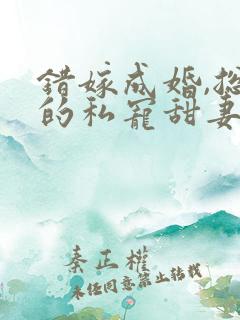 错嫁成婚,总
的私宠甜妻
秦正權
未经同意禁止转载